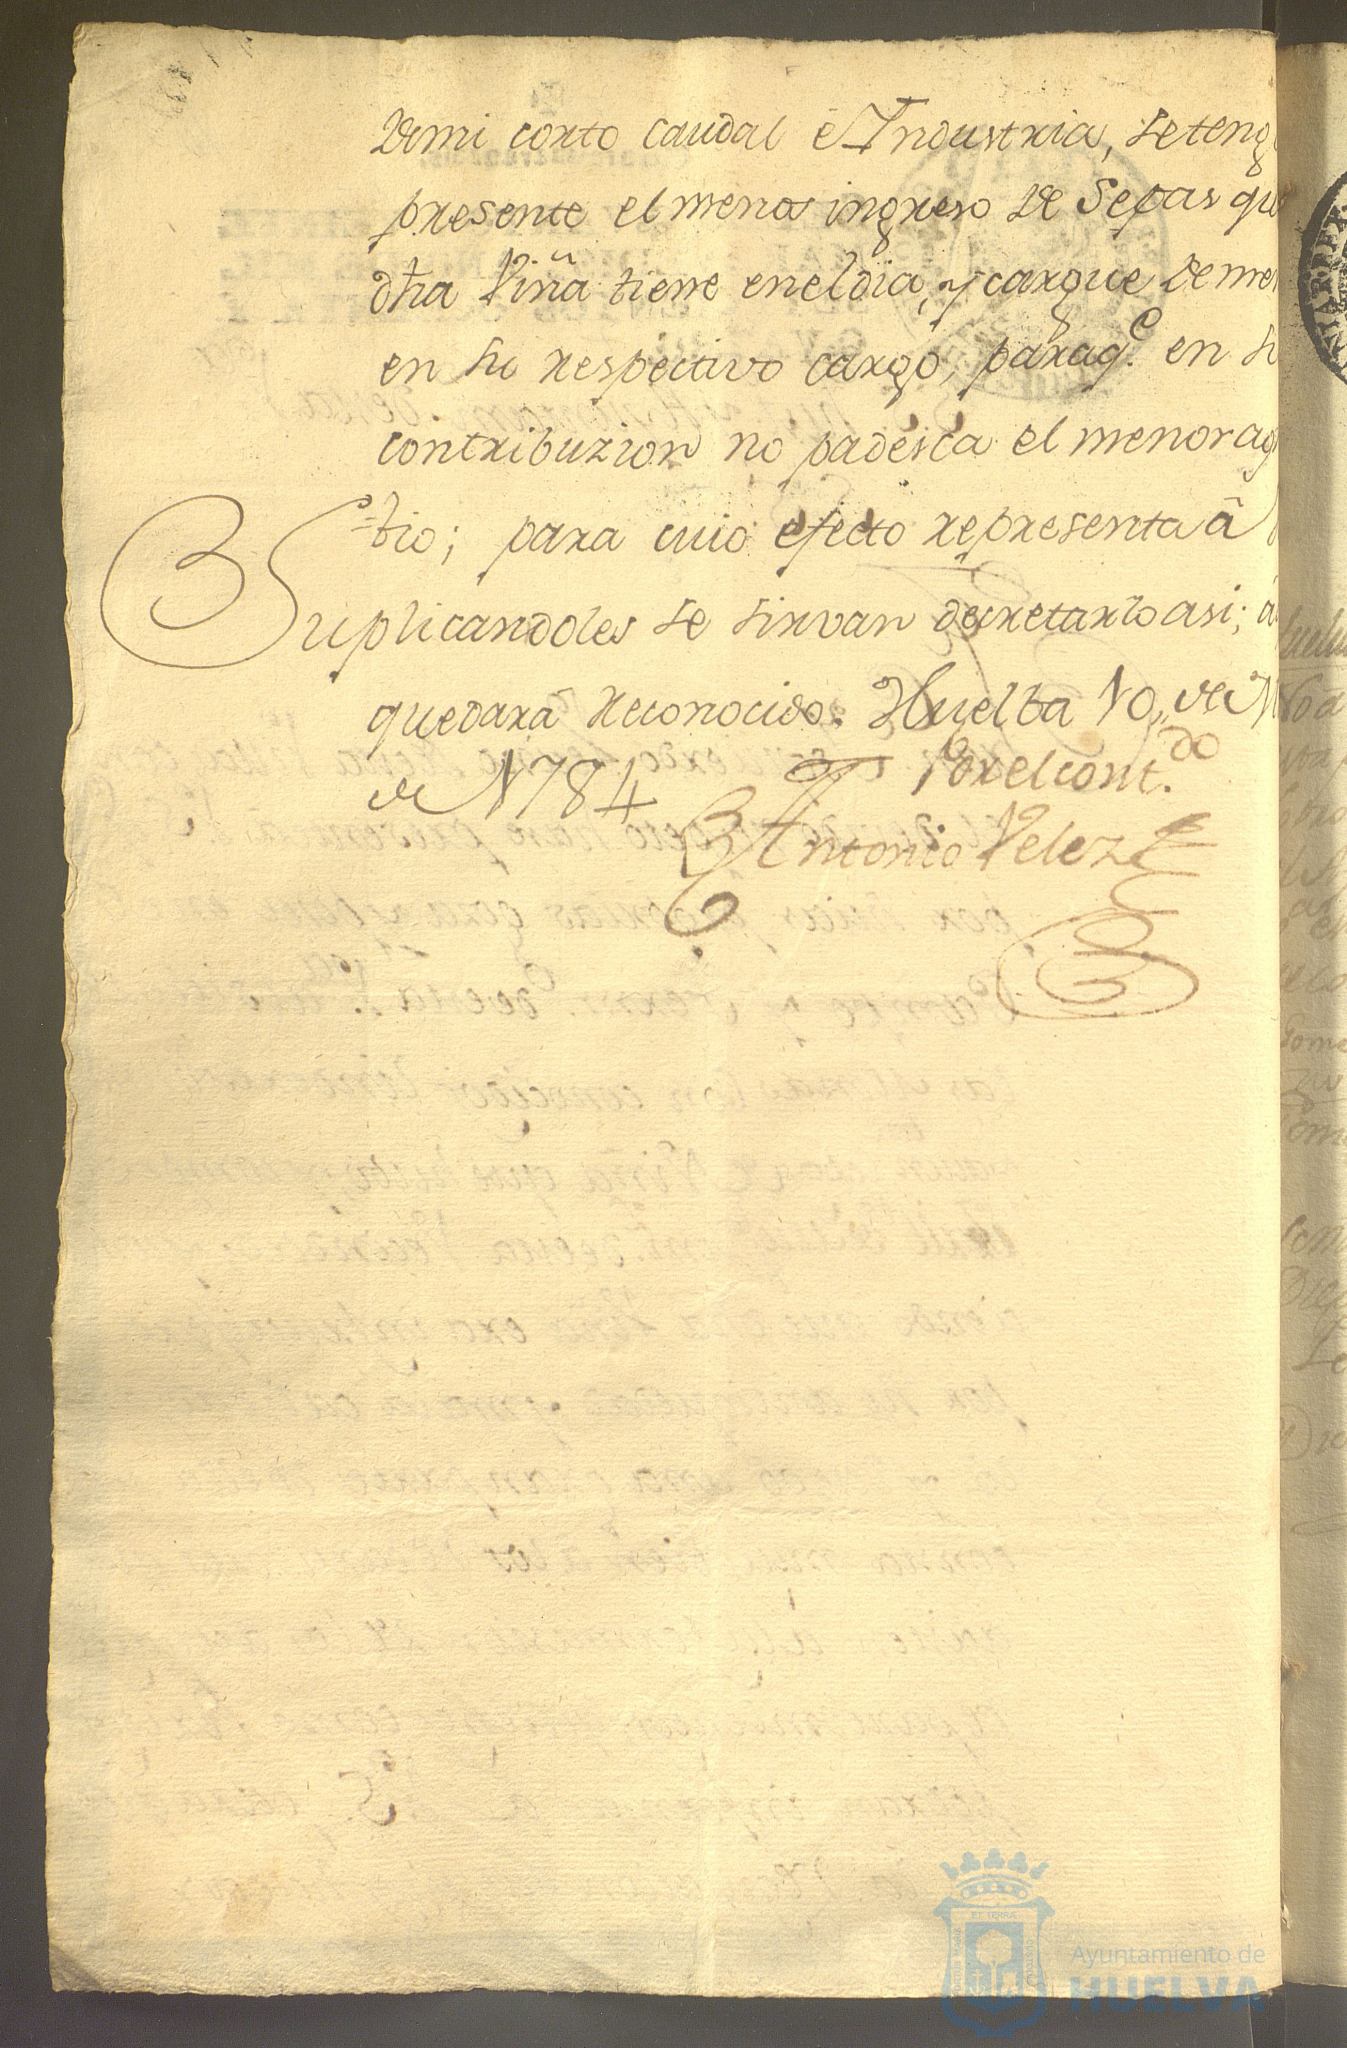 De mi corto caudal é Industria, se teng
presente el menos ingreso de Sepas que
dha Viña tiene en el dia, y cargue de men
en su respectivo cargo, para q.e en su
contribuzion no padesca el menor ag
bio; para cuio efecto representa â
Suplicandoles se sirvan decretarlo asi; á
quedara reconocido. Huelba 10,, de M
de 1784
Por el cont.do
Antonio Velez
Ayuntamiento de
HUELVA